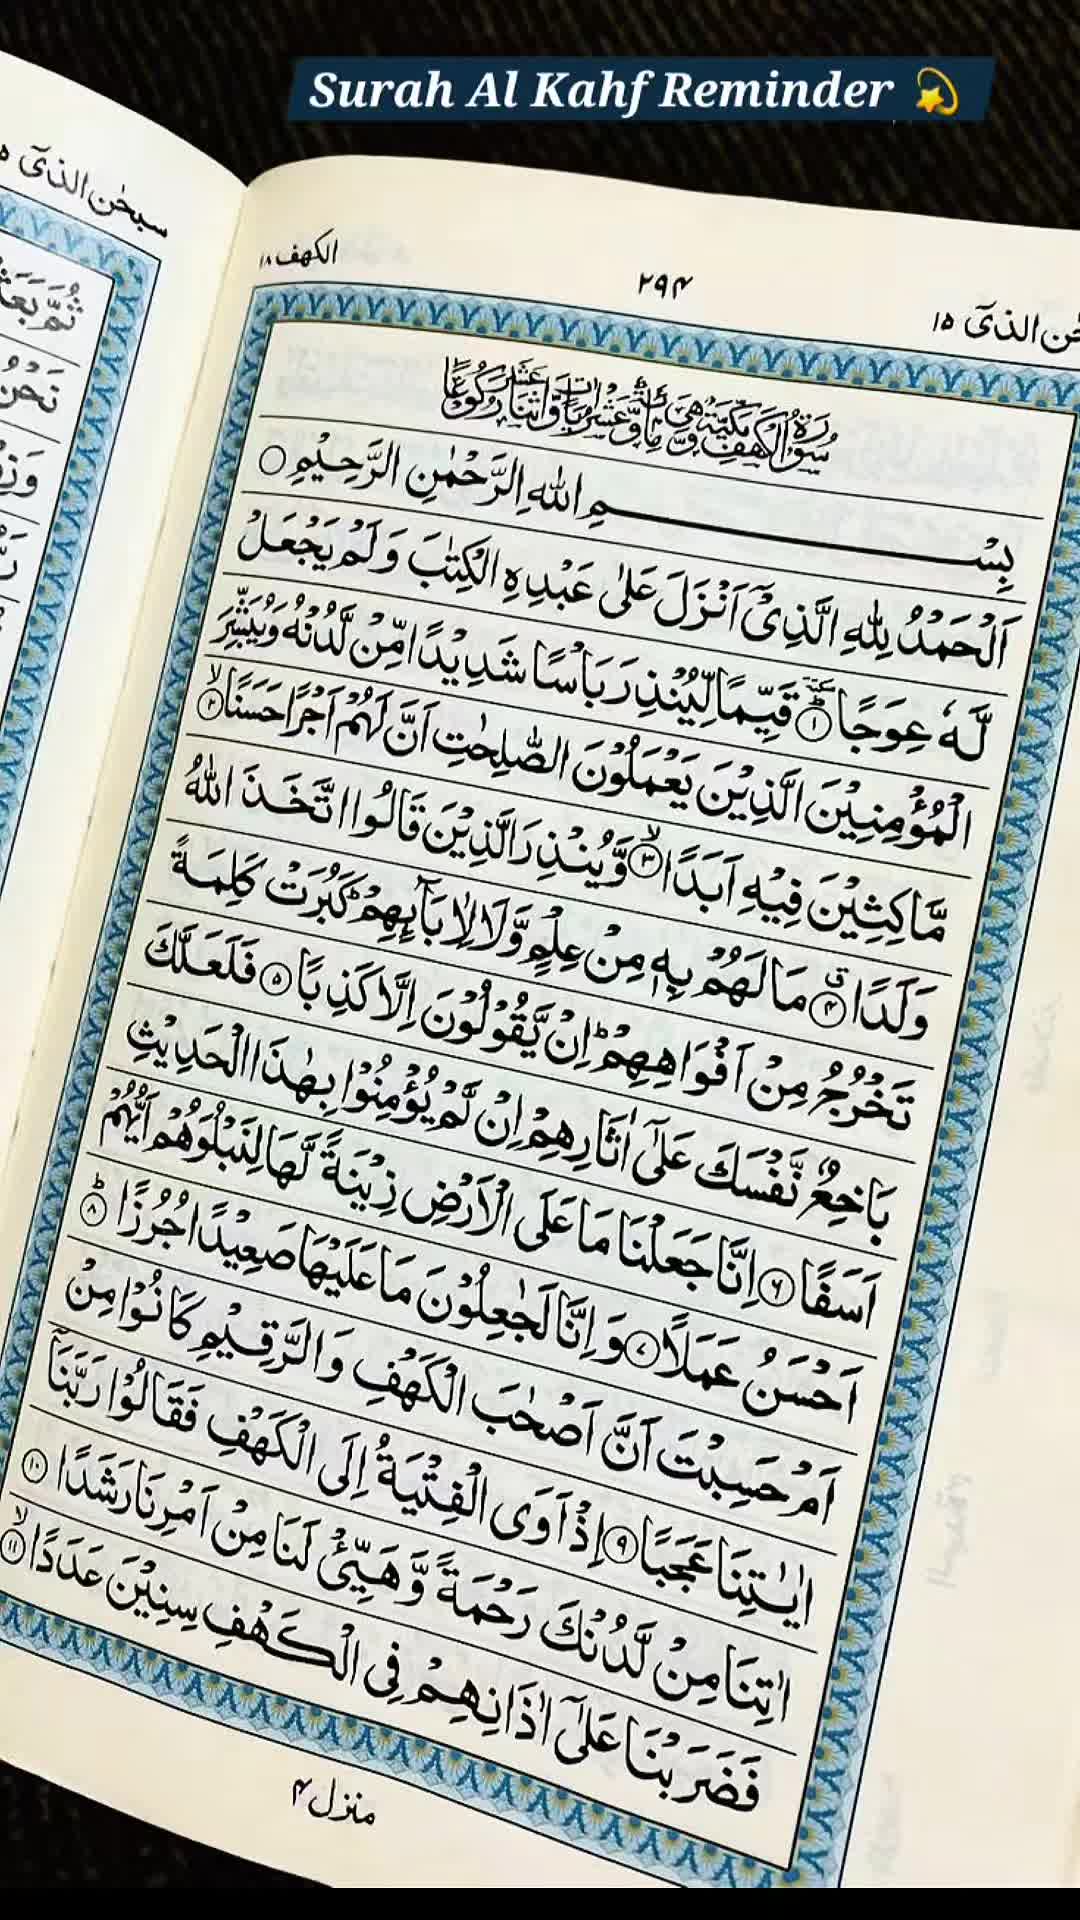 Surah Al Kahf Reminder 💫
سبحن الذیٓ
الكهف ١٨
٢٩۴
حٰن الذیٓ ١٥
ثُمَّ بَعَثْ
نَحْنُ
سُوْرَةُ الْكَهْفِ مَكِّيَّةٌ وَّهِیَ مِائَةٌ وَّعَشْرُ اٰيَاتٍ وَّاثْنَا عَشَرَ رُكُوْعًا
بِسْمِ اللّٰهِ الرَّحْمٰنِ الرَّحِيْمِ
اَلْحَمْدُ لِلّٰهِ الَّذِیْۤ اَنْزَلَ عَلٰی عَبْدِهِ الْكِتٰبَ وَلَمْ يَجْعَلْ
لَّهٗ عِوَجًا ؕ ١ قَيِّمًا لِّيُنْذِرَ بَاْسًا شَدِيْدًا مِّنْ لَّدُنْهُ وَيُبَشِّرَ
الْمُؤْمِنِيْنَ الَّذِيْنَ يَعْمَلُوْنَ الصّٰلِحٰتِ اَنَّ لَهُمْ اَجْرًا حَسَنًا ۙ ٢
مَّاكِثِيْنَ فِيْهِ اَبَدًا ۙ ٣ وَّيُنْذِرَ الَّذِيْنَ قَالُوا اتَّخَذَ اللّٰهُ
وَلَدًا ۗ ۴ مَا لَهُمْ بِهٖ مِنْ عِلْمٍ وَّلَا لِاٰبَآئِهِمْ ؕ كَبُرَتْ كَلِمَةً
تَخْرُجُ مِنْ اَفْوَاهِهِمْ ؕ اِنْ يَّقُوْلُوْنَ اِلَّا كَذِبًا ٥ فَلَعَلَّكَ
بَاخِعٌ نَّفْسَكَ عَلٰۤی اٰثَارِهِمْ اِنْ لَّمْ يُؤْمِنُوْا بِهٰذَا الْحَدِيْثِ
اَسَفًا ٦ اِنَّا جَعَلْنَا مَا عَلَی الْاَرْضِ زِيْنَةً لَّهَا لِنَبْلُوَهُمْ اَيُّهُمْ
اَحْسَنُ عَمَلًا ٧ وَاِنَّا لَجٰعِلُوْنَ مَا عَلَيْهَا صَعِيْدًا جُرُزًا ؕ ٨
اَمْ حَسِبْتَ اَنَّ اَصْحٰبَ الْكَهْفِ وَالرَّقِيْمِ كَانُوْا مِنْ
اٰيٰتِنَا عَجَبًا ٩ اِذْ اَوَی الْفِتْيَةُ اِلَی الْكَهْفِ فَقَالُوْا رَبَّنَاۤ
اٰتِنَا مِنْ لَّدُنْكَ رَحْمَةً وَّهَيِّئْ لَنَا مِنْ اَمْرِنَا رَشَدًا ١٠
فَضَرَبْنَا عَلٰۤی اٰذَانِهِمْ فِی الْكَهْفِ سِنِيْنَ عَدَدًا ۙ ١١
منزل ۴